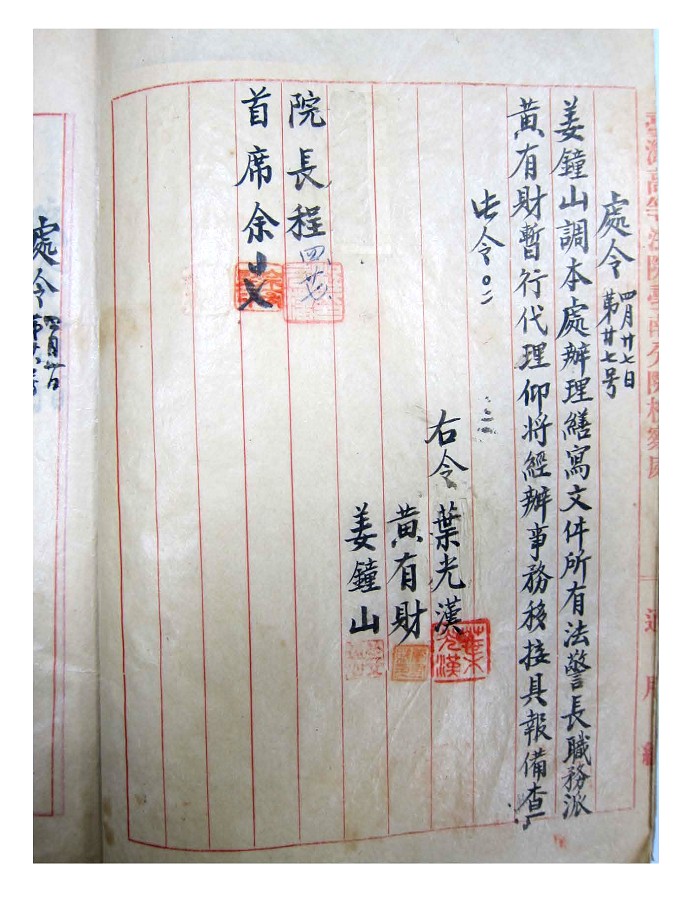 臺灣高等法院臺南分院檢察處
處令 四月廿七日
第廿七号
姜鐘山調本處辦理繕寫文件所有法警長職務派
黃有財暫行代理仰將經辦事務移接具報備查
此令
右令 葉光漢
黃有財
姜鐘山
葉光漢
院長程
首席余
處令